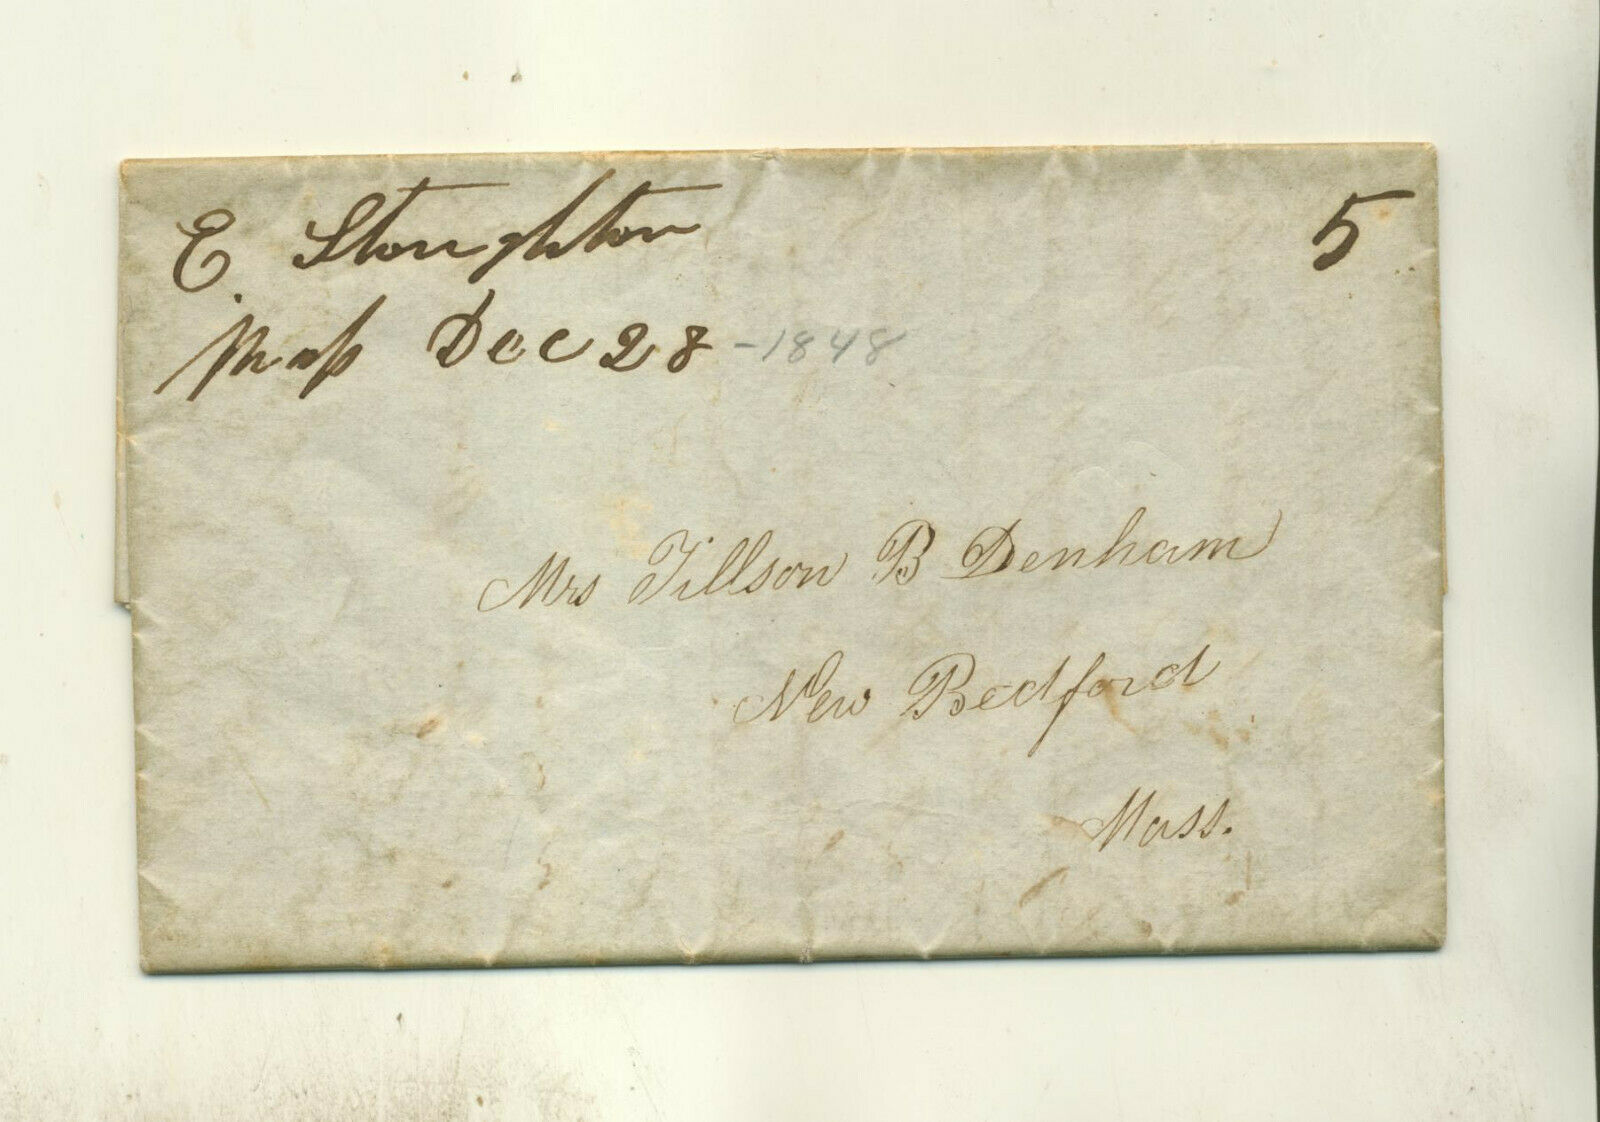 E. Stoughton 5
Mass Dec 28 -1848
Mrs Tillson B Denham
New Bedford
Mass.